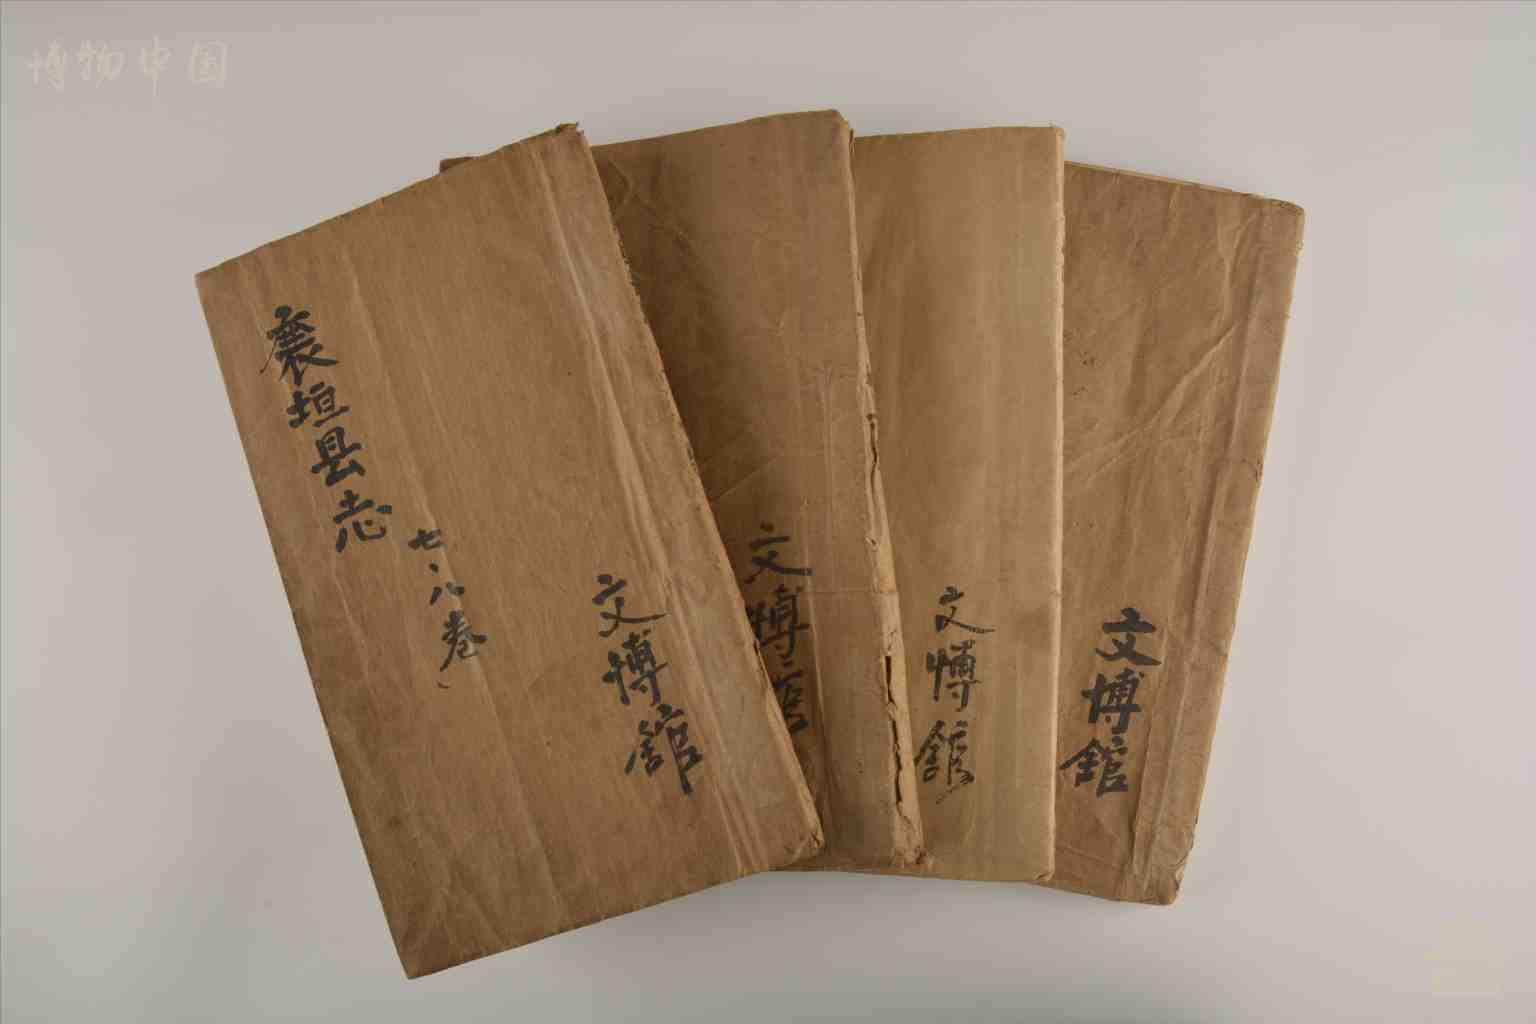 博物中国
襄垣县志
七、八卷
文博館
文博館
文博館
文博館